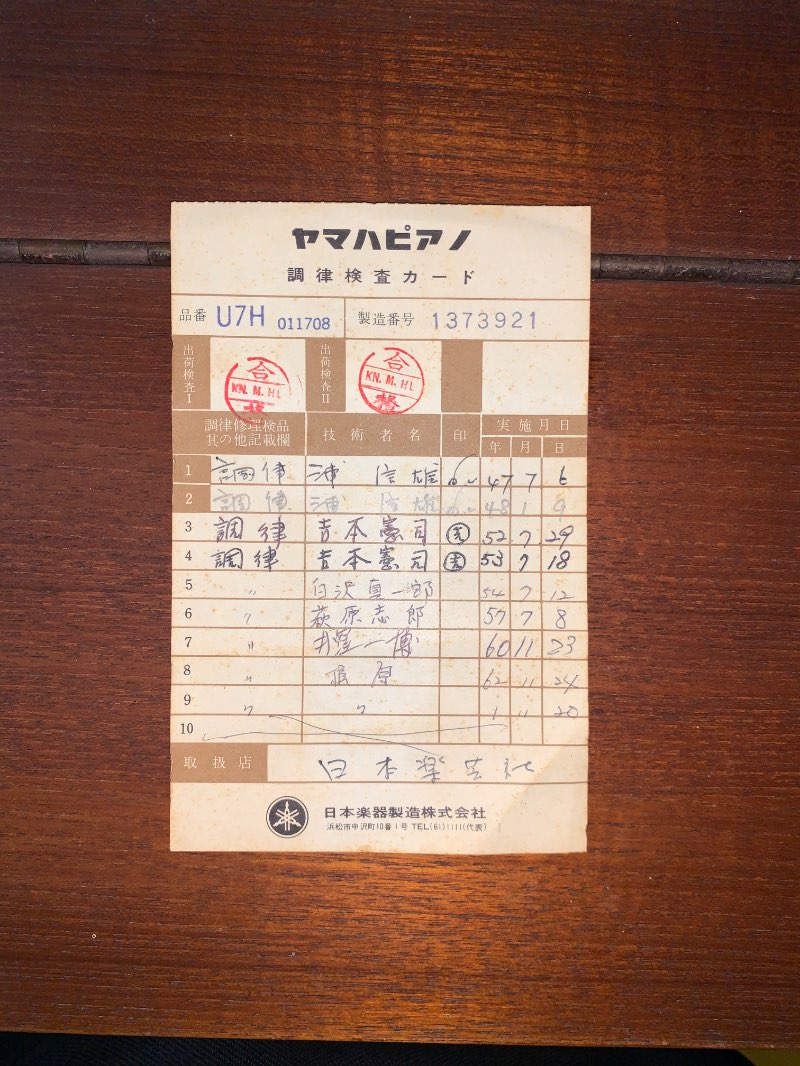 ヤマハピアノ
調律検査カード
品番 U7H 011708 製造番号 1373921
出荷検査I 合 KN. M. HL 出荷検査II 合 KN. M. HL 格
調律修理検品其の他記載欄 技術者名 印 実施月日
年 月 日
1 調律 三浦 信雄 47 7 6
2 調律 三浦 信雄 48 1 9
3 調律 吉本憲司 52 7 29
4 調律 吉本憲司 53 7 18
5 〃 白沢真一郎 54 7 12
6 〃 萩原志郎 57 7 8
7 〃 一博 60 11 23
8 〃 梶原 62 11 24
9 〃 〃 1 11 20
10
取扱店 日本楽芸社
日本楽器製造株式会社
浜松市中沢町10番1号 TEL(61)1111(代表)